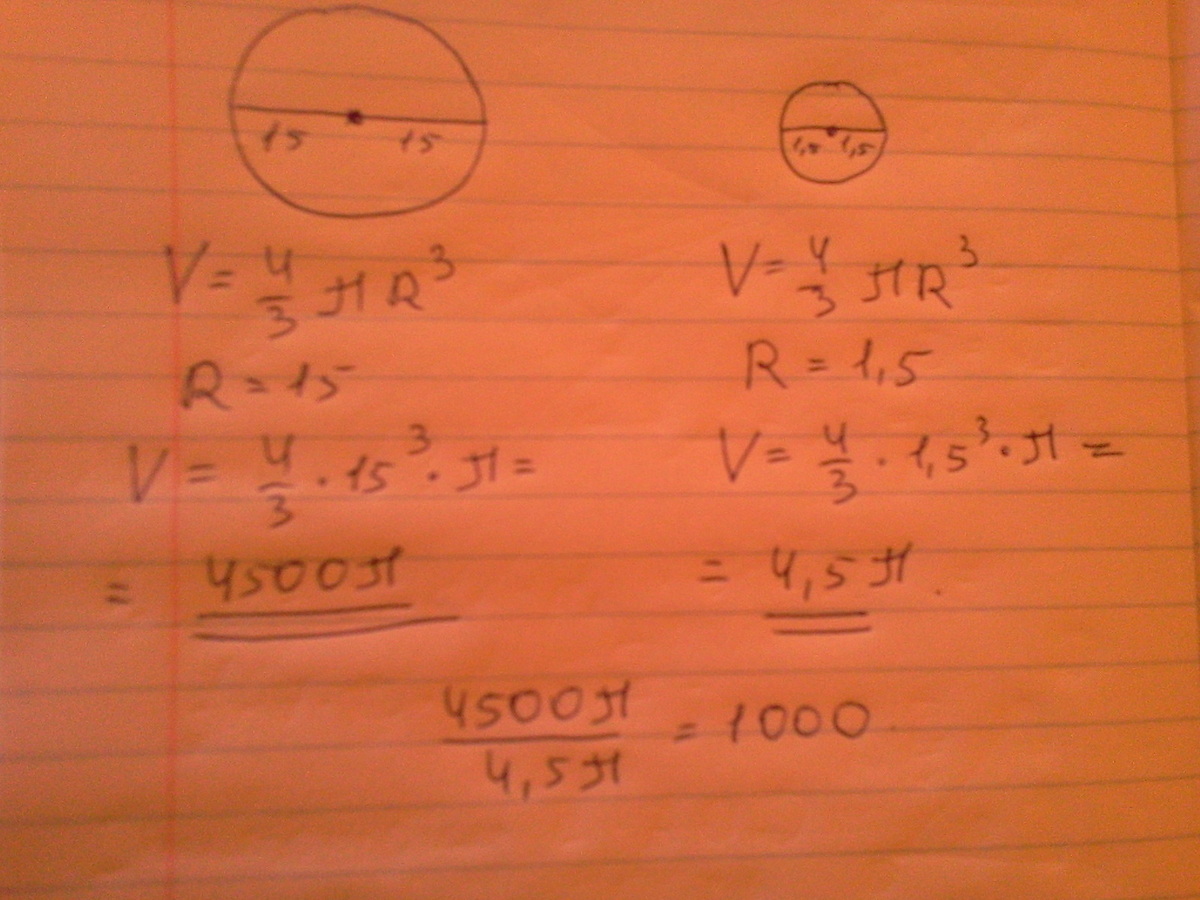 15 15
1,5 1,5
V = 4/3 π R³
R = 15
V = 4/3 · 15³ · π =
= 4500π
V = 4/3 π R³
R = 1,5
V = 4/3 · 1,5³ · π =
= 4,5π.
4500π / 4,5π = 1000